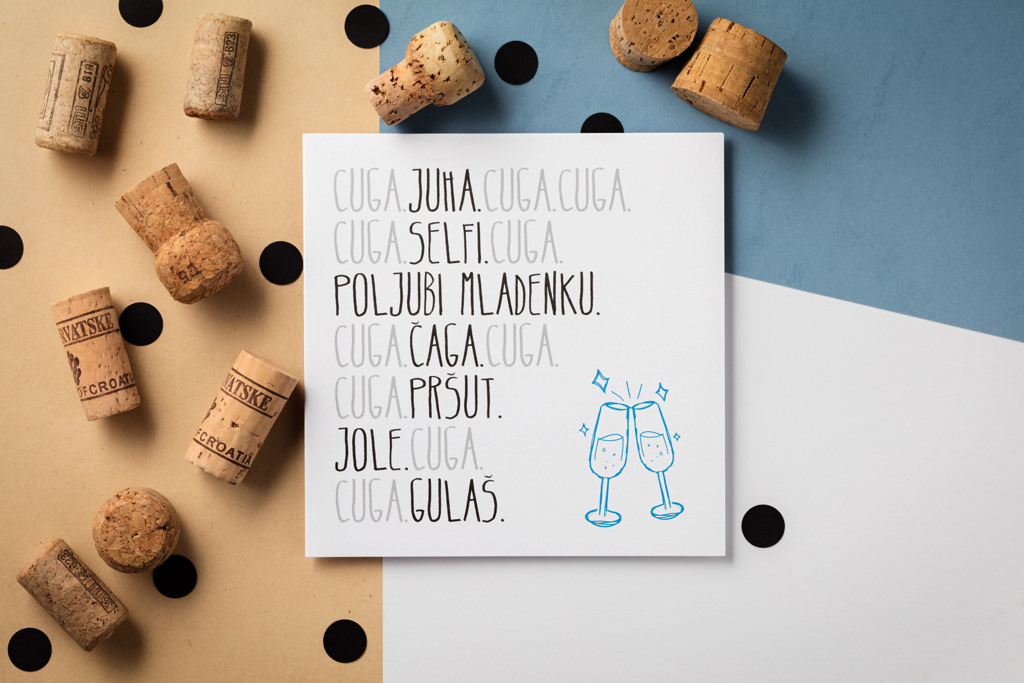 CUGA.JUHA.CUGA.CUGA.
CUGA.SELFI.CUGA.
POLJUBI MLADENKU.
CUGA.ČAGA.CUGA.
CUGA.PRŠUT.
JOLE.CUGA.
CUGA.GULAŠ.
RVATSKE
OFCROATI
VATSKE
OFCROATIA